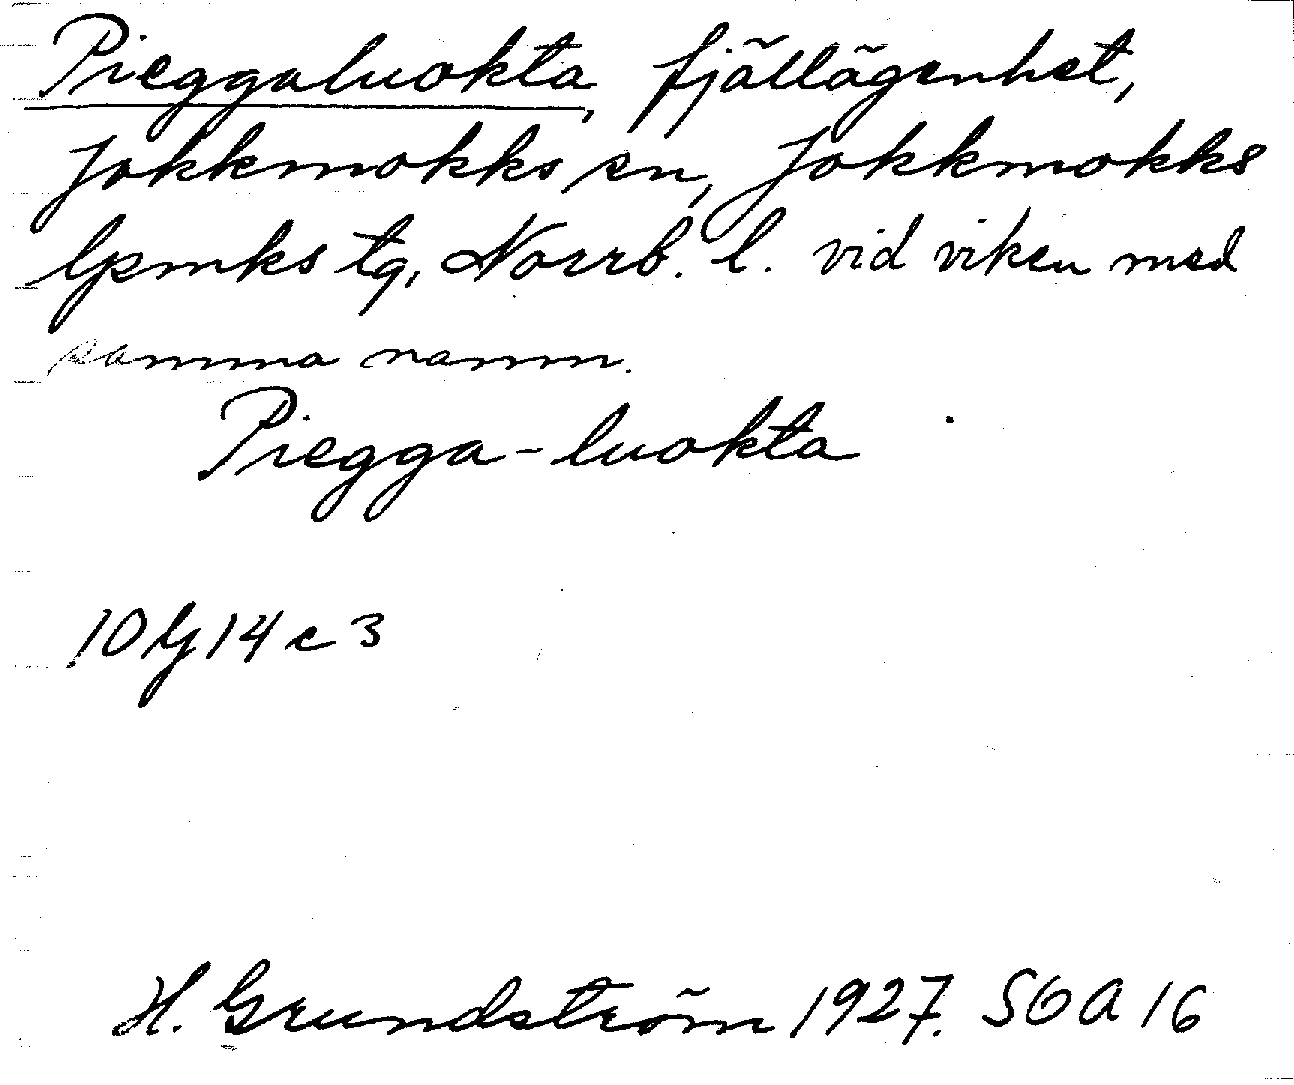 Pieggaluokta, fjällägenhet,
Jokkmokks sn, Jokkmokks
lpmks tg, Norrb. l. vid viken med
samma namn.
Piegga-luokta
10 G 14 c 3
H. Grundström 1927. SOA 16